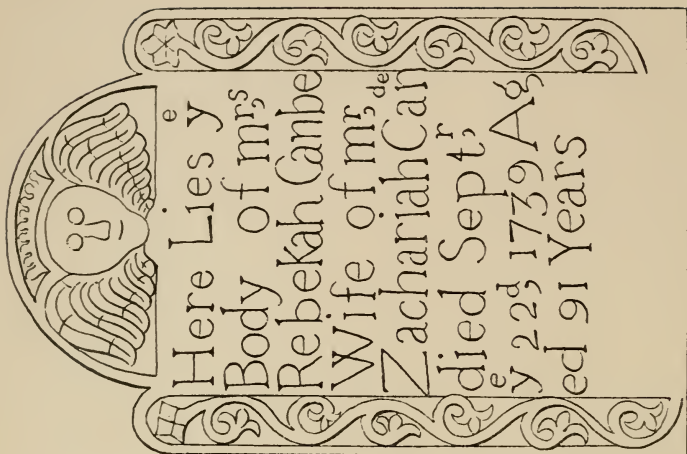 Here Lies yᵉ
Body of mrˢ,
Rebekah Canbe
Wife of mr,
Zachariah Canᵈᵉ
died Septʳ,
yᵉ 22ᵈ, 1739 Ag
ed 91 Years